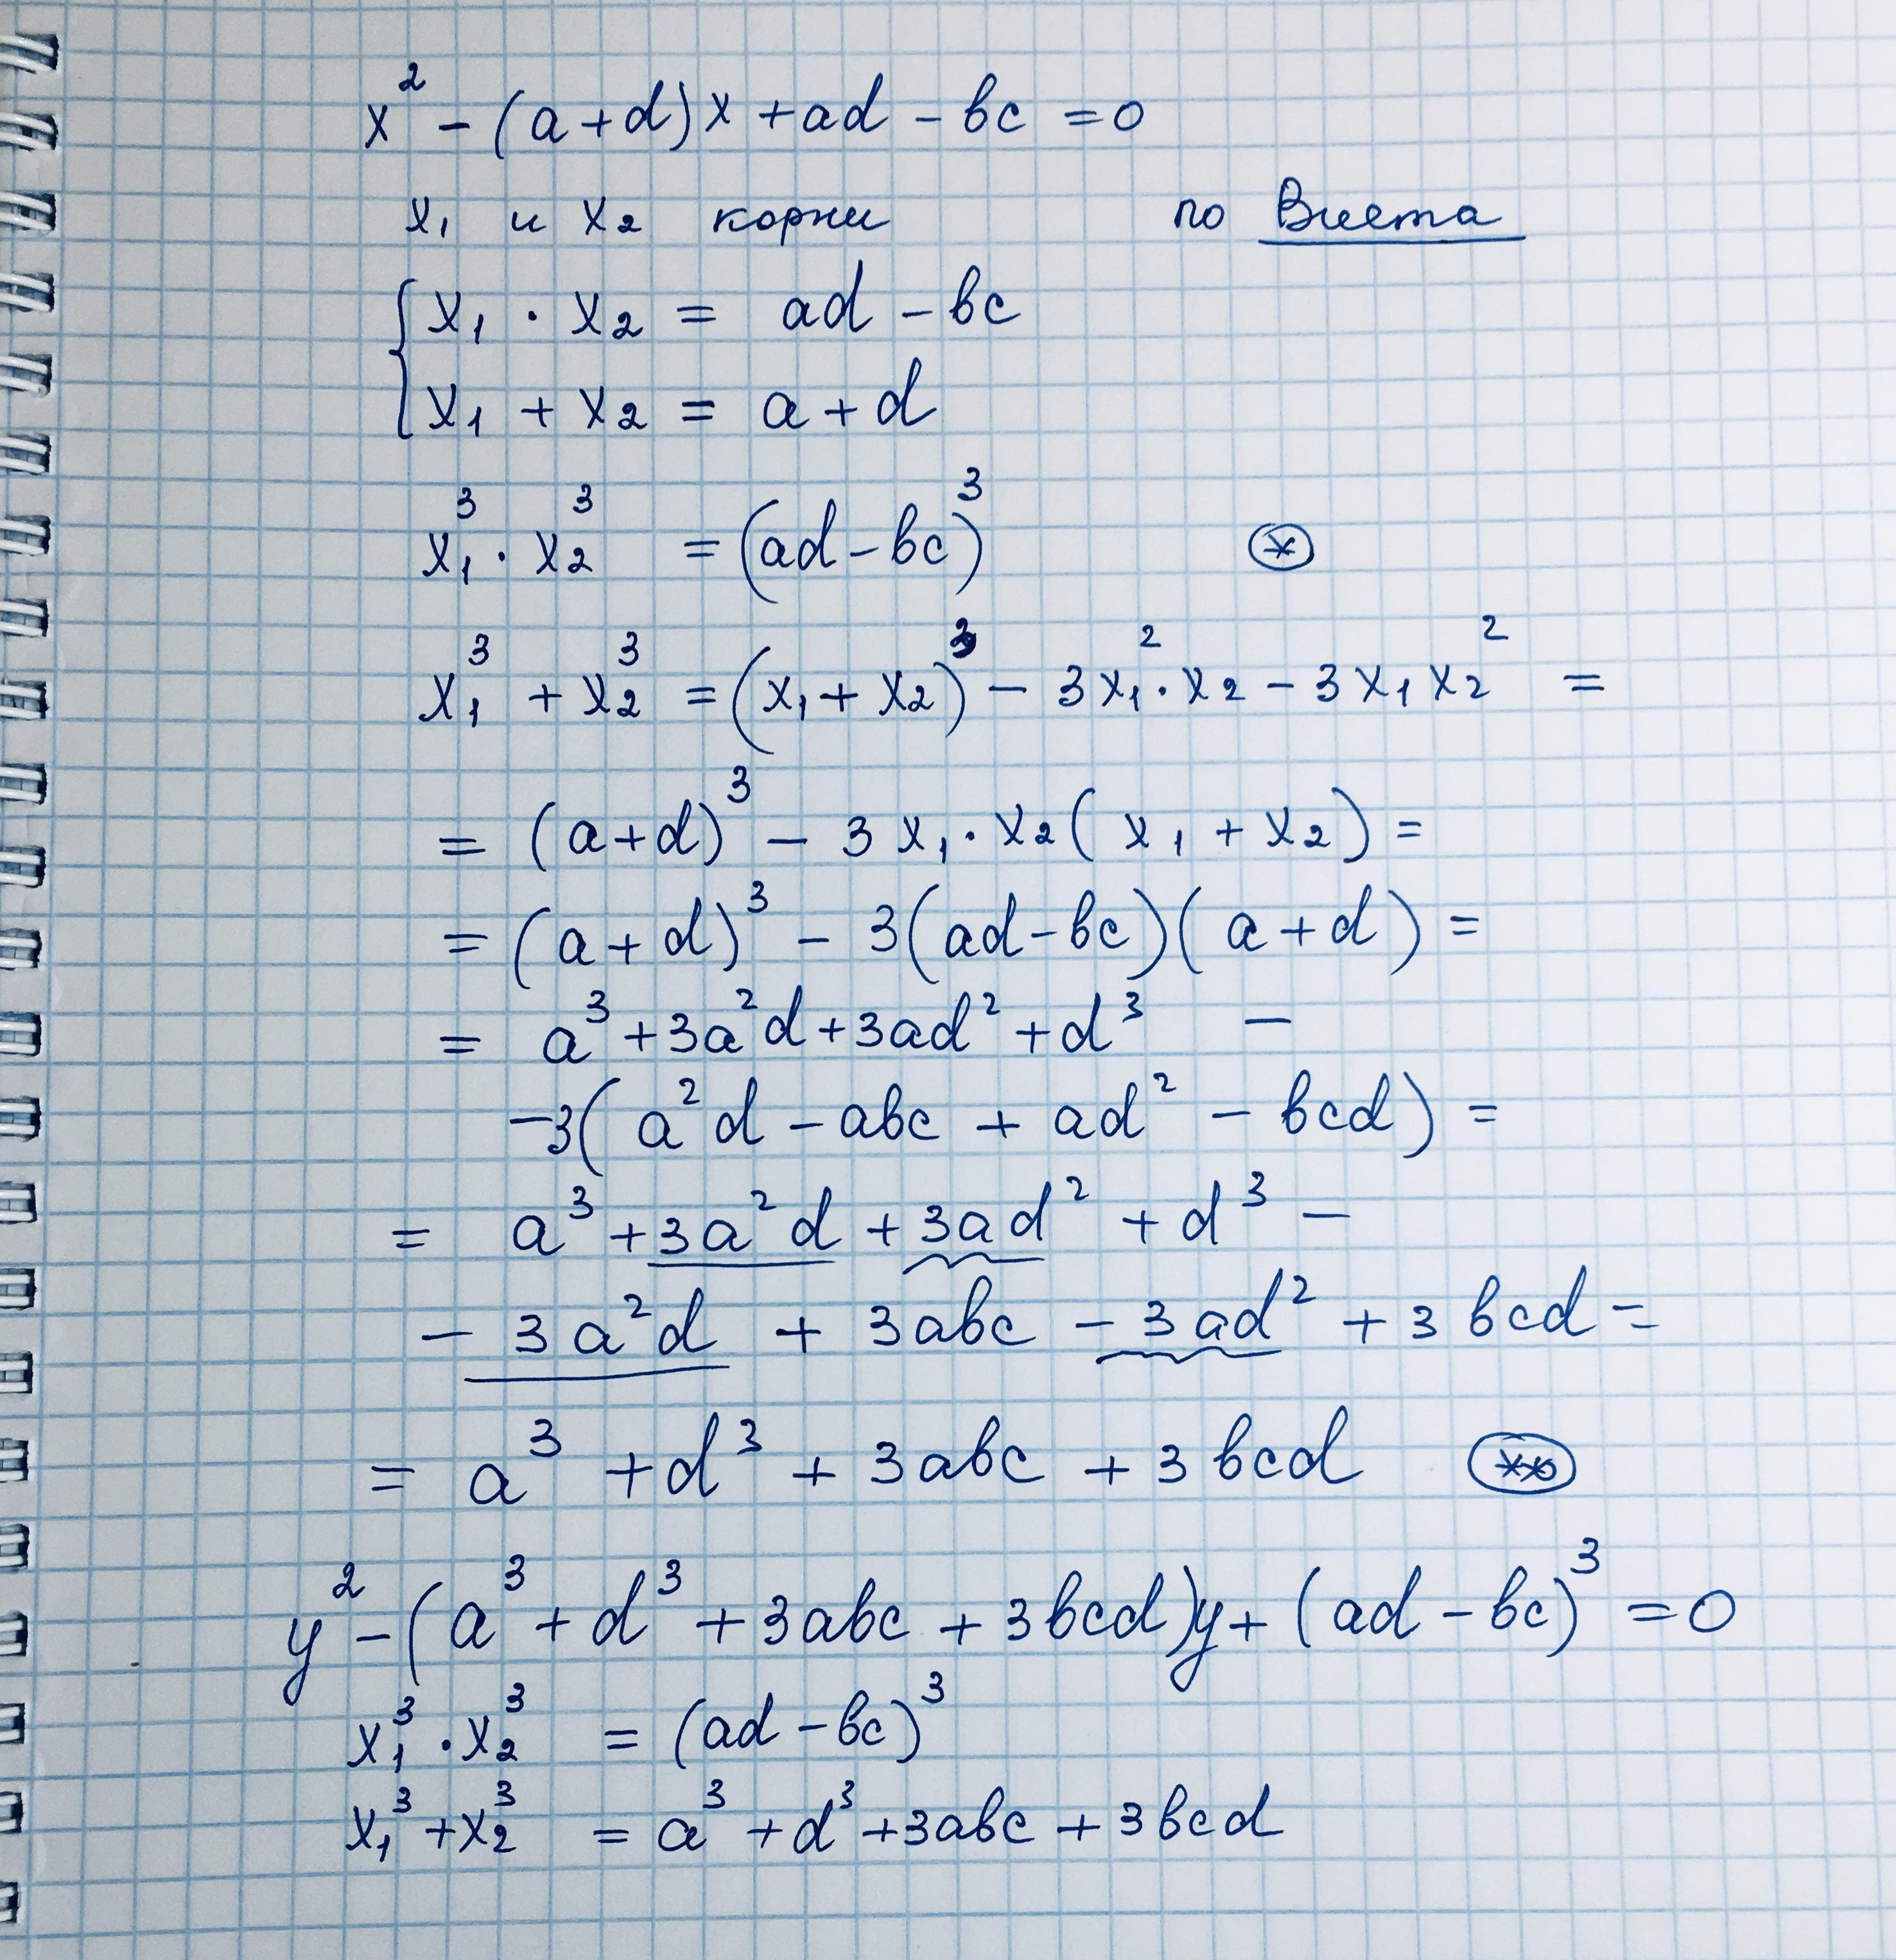 x² - (a+d)x + ad - bc = 0
x₁ и x₂ корни по Виета
x₁ · x₂ = ad - bc
x₁ + x₂ = a + d
x₁³ · x₂³ = (ad - bc)³ (*)
x₁³ + x₂³ = (x₁ + x₂)³ - 3x₁² · x₂ - 3x₁x₂² =
= (a+d)³ - 3x₁ · x₂(x₁ + x₂) =
= (a+d)³ - 3(ad-bc)(a+d) =
= a³ + 3a²d + 3ad² + d³ -
-3(a²d - abc + ad² - bcd) =
= a³ + 3a²d + 3ad² + d³ -
- 3a²d + 3abc - 3ad² + 3bcd =
= a³ + d³ + 3abc + 3bcd (**)
y² - (a³ + d³ + 3abc + 3bcd)y + (ad - bc)³ = 0
x₁³ · x₂³ = (ad - bc)³
x₁³ + x₂³ = a³ + d³ + 3abc + 3bcd